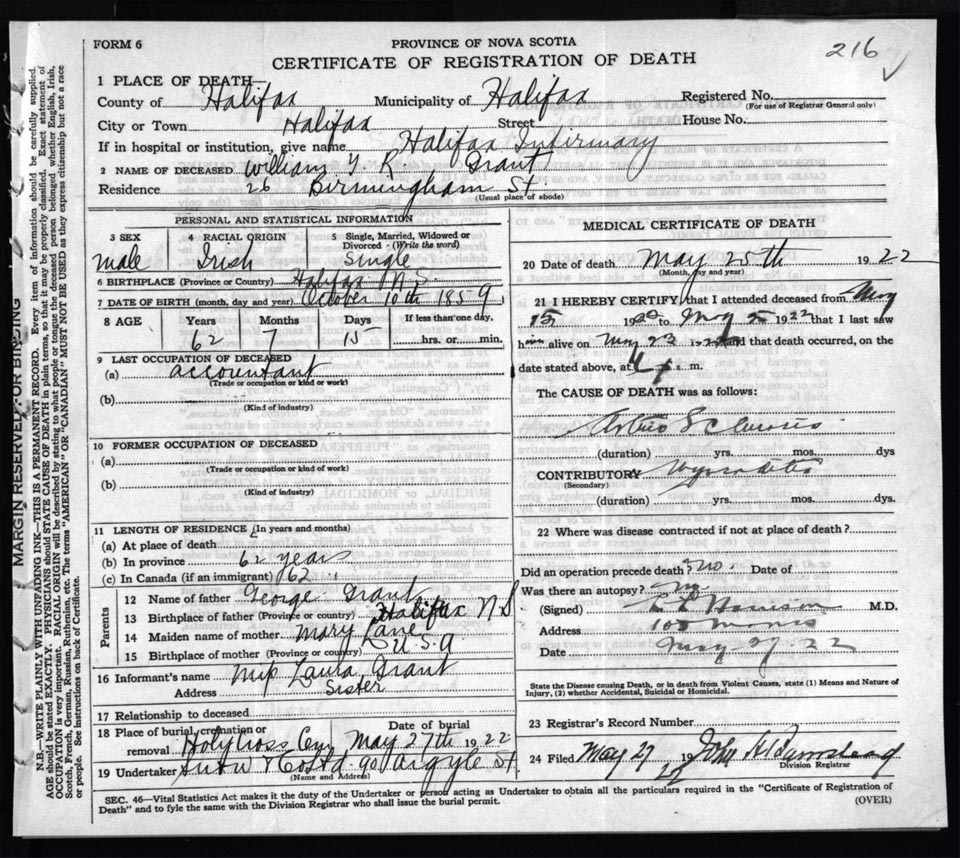 FORM 6
PROVINCE OF NOVA SCOTIA
216
CERTIFICATE OF REGISTRATION OF DEATH
1 PLACE OF DEATH—
County of Halifax Municipality of Halifax Registered No.
(For use of Registrar General only)
City or Town Halifax Street House No.
If in hospital or institution, give name Halifax Infirmary
2 NAME OF DECEASED William Y K Grant
Residence 26 Birmingham St.
(Usual place of abode)
PERSONAL AND STATISTICAL INFORMATION
3 SEX 4 RACIAL ORIGIN 5 Single, Married, Widowed or Divorced - (Write the word)
male Irish Single
6 BIRTHPLACE (Province or Country) Halifax N.S.
7 DATE OF BIRTH (month, day and year) October 10th 1859
8 AGE Years Months Days If less than one day,
62 7 15 hrs. or min.
9 LAST OCCUPATION OF DECEASED
(a) accountant
(Trade or occupation or kind or work)
(b)
(Kind of industry)
10 FORMER OCCUPATION OF DECEASED
(a)
(Trade or occupation or kind or work)
(b)
(Kind of industry)
11 LENGTH OF RESIDENCE (In years and months)
(a) At place of death
(b) In province 62 years
(c) In Canada (if an immigrant) 62 "
Parents
12 Name of father George Grant
13 Birthplace of father (Province or Country) Halifax N S
14 Maiden name of mother Mary Lane
15 Birthplace of mother (Province or country) U.S.A
16 Informant's name Miss Laura Grant
Address Sister
17 Relationship to deceased
18 Place of burial, cremation or removal Date of burial
Holy Cross Cem May 27th 1922
19 Undertaker Snow & Co Ltd 90 Argyle St
(Name and Address)
MEDICAL CERTIFICATE OF DEATH
20 Date of death May 25th 1922
(Month, day and year)
21 I HEREBY CERTIFY that I attended deceased from May
15 1922 to May 25 1922 that I last saw
him alive on May 23 1922 and that death occurred, on the
date stated above, at 4 p. m.
The CAUSE OF DEATH was as follows:
Arterio Sclerosis
(duration) yrs. mos. dys
CONTRIBUTORY
(Secondary)
(duration) yrs. mos. dys.
22 Where was disease contracted if not at place of death?
Did an operation precede death? no. Date of
Was there an autopsy? no
(Signed) M.D.
Address
Date May 27 22
State the Disease causing Death, or in death from Violent Causes, state (1) Means and Nature of Injury, (2) whether Accidental, Suicidal or Homicidal.
23 Registrar's Record Number
24 Filed May 27 1922 John A Barnstead
Division Registrar
SEC. 46—Vital Statistics Act makes it the duty of the Undertaker or person acting as Undertaker to obtain all the particulars required in the "Certificate of Registration of
Death" and to fyle the same with the Division Registrar who shall issue the burial permit.
(OVER)
MARGIN RESERVED FOR BINDING
N.B.—WRITE PLAINLY WITH UNFADING INK—THIS IS A PERMANENT RECORD. Every item of information should be carefully supplied.
AGE should be stated EXACTLY. PHYSICIANS should STATE CAUSE OF DEATH in plain terms, so that it may be properly classified. Exact statement of
OCCUPATION is very important. RACIAL ORIGIN will be described by stating to what people or tongue the deceased person belonged whether English, Irish,
Scotch, French, German, Russian, Ruthenian, etc. The terms "AMERICAN" OR "CANADIAN" MUST NOT BE USED as they express citizenship but not a race
or people. See instructions on back of Certificate.